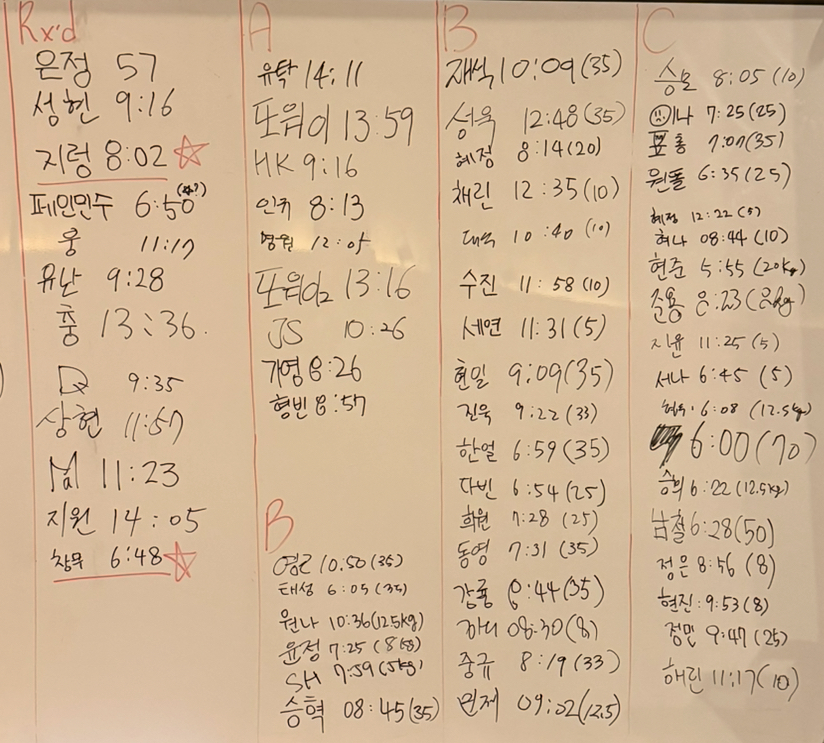 Rx'd
은정 57
성현 9:16
지렁 8:02
페인민수 6:50
웅 11:17
유난 9:28
훙 13:36.
DQ 9:35
상현 11:57
11:23
지원 14:05
창무 6:48
A
유탁 14:11
또워이 13:59
HK 9:16
인귀 8:13
명원 12:05
또워이2 13:16
JS 10:26
가영 8:26
형빈 8:57
B
영근 10.50 (35)
태성 6:05 (35)
원나 10:36 (12.5kg)
윤정 7:25 (8kg)
SH 7:59 (5kg)
승혁 08:45 (35)
B
재석 10:09 (35)
성욱 12:48 (35)
혜정 8:14 (20)
채린 12:35 (10)
10:40 (10)
수진 11:58 (10)
세연 11:31 (5)
현일 9:09 (35)
진욱 9:22 (33)
한얼 6:59 (35)
다빈 6:54 (25)
희원 7:28 (25)
동영 7:31 (35)
강룡 8:44 (35)
08:30 (8)
중규 8:19 (33)
민제 09:02 (12.5)
C
승모 8:05 (10)
이나 7:25 (25)
표홍 7:07 (35)
원돌 6:35 (25)
혜정 12:22 (5)
허나 08:44 (10)
현준 5:55 (20kg)
준용 8:23 (8kg)
지윤 11:25 (5)
서나 6:45 (5)
6:08 (12.5kg)
6:00 (70)
승희 6:22 (12.5kg)
남철 6:28 (50)
정은 8:56 (8)
현진: 9:53 (8)
정민 9:47 (25)
해린 11:17 (10)